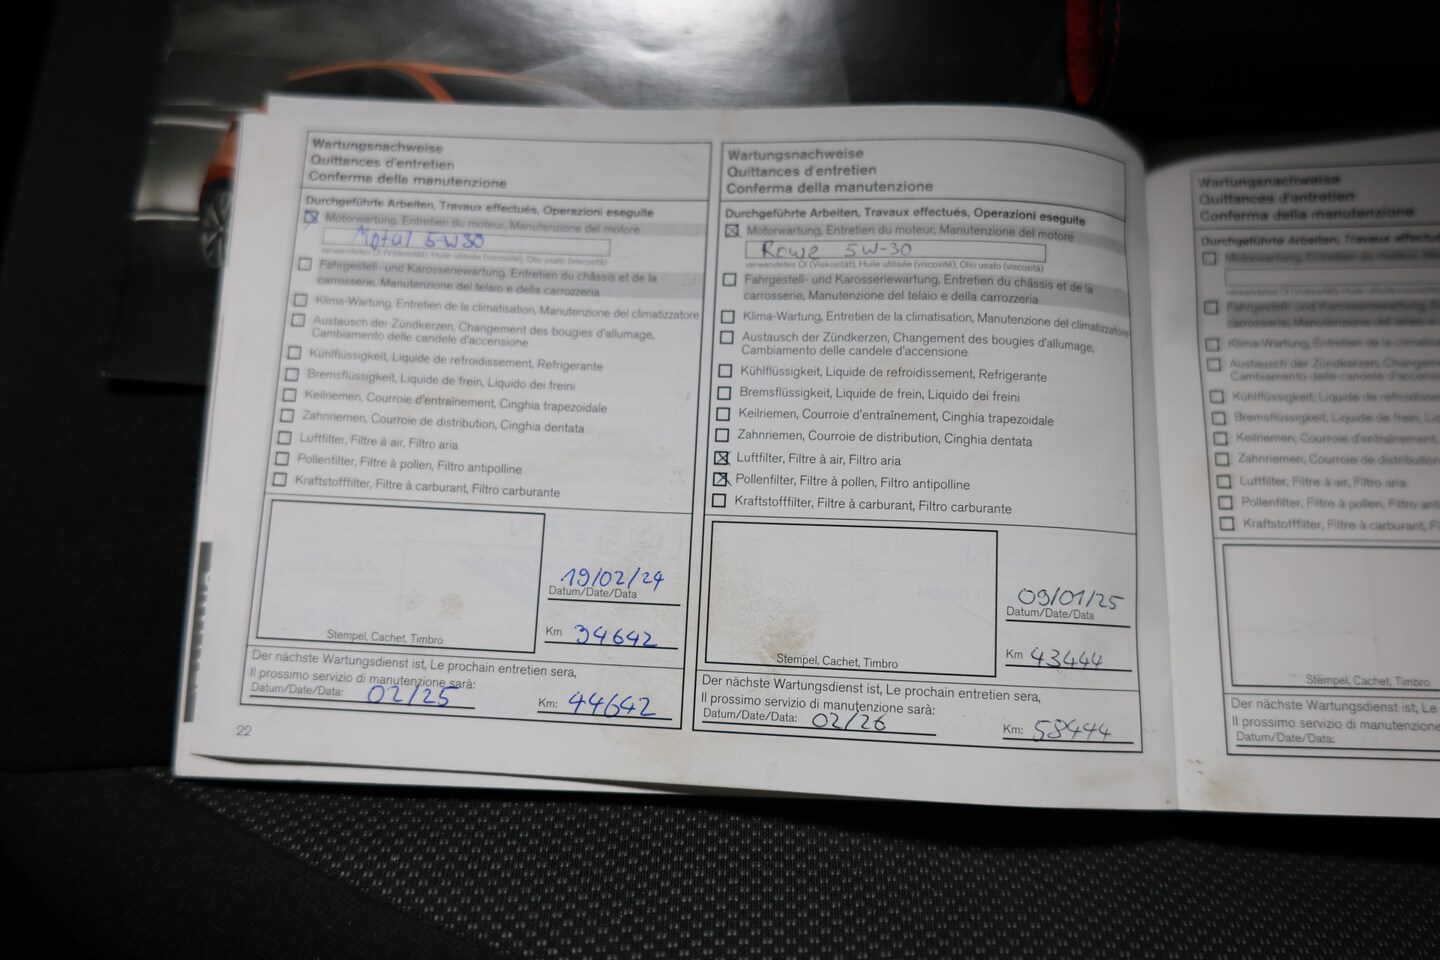 Wartungsnachweise
Quittances d'entretien
Conferma della manutenzione
Durchgeführte Arbeiten, Travaux effectués, Operazioni eseguite
Motorwartung, Entretien du moteur, Manutenzione del motore
Motul 5-W30
verwendetes Öl (Viskosität), Huile utilisée (viscosité), Olio usato (viscosità)
Fahrgestell- und Karosseriewartung, Entretien du châssis et de la
carrosserie, Manutenzione del telaio e della carrozzeria
Klima-Wartung, Entretien de la climatisation, Manutenzione del climatizzatore
Austausch der Zündkerzen, Changement des bougies d'allumage,
Cambiamento delle candele d'accensione
Kühlflüssigkeit, Liquide de refroidissement, Refrigerante
Bremsflüssigkeit, Liquide de frein, Liquido dei freini
Keilriemen, Courroie d'entraînement, Cinghia trapezoidale
Zahnriemen, Courroie de distribution, Cinghia dentata
Luftfilter, Filtre à air, Filtro aria
Pollenfilter, Filtre à pollen, Filtro antipolline
Kraftstofffilter, Filtre à carburant, Filtro carburante
19/02/24
Datum/Date/Data
Km 34642
Stempel, Cachet, Timbro
Der nächste Wartungsdienst ist, Le prochain entretien sera,
Il prossimo servizio di manutenzione sarà:
Datum/Date/Data: 02/25 Km: 44642
22
Wartungsnachweise
Quittances d'entretien
Conferma della manutenzione
Durchgeführte Arbeiten, Travaux effectués, Operazioni eseguite
Motorwartung, Entretien du moteur, Manutenzione del motore
Rowe 5W-30
verwendetes Öl (Viskosität), Huile utilisée (viscosité), Olio usato (viscosità)
Fahrgestell- und Karosseriewartung, Entretien du châssis et de la
carrosserie, Manutenzione del telaio e della carrozzeria
Klima-Wartung, Entretien de la climatisation, Manutenzione del climatizzatore
Austausch der Zündkerzen, Changement des bougies d'allumage,
Cambiamento delle candele d'accensione
Kühlflüssigkeit, Liquide de refroidissement, Refrigerante
Bremsflüssigkeit, Liquide de frein, Liquido dei freini
Keilriemen, Courroie d'entraînement, Cinghia trapezoidale
Zahnriemen, Courroie de distribution, Cinghia dentata
Luftfilter, Filtre à air, Filtro aria
Pollenfilter, Filtre à pollen, Filtro antipolline
Kraftstofffilter, Filtre à carburant, Filtro carburante
09/01/25
Datum/Date/Data
Km 43444
Stempel, Cachet, Timbro
Der nächste Wartungsdienst ist, Le prochain entretien sera,
Il prossimo servizio di manutenzione sarà:
Datum/Date/Data: 02/26 Km: 58444
Wartungsnachweise
Quittances d'entretien
Conferma della manutenzione
Durchgeführte Arbeiten, Travaux
Motorwartung, Entretien du moteur,
Fahrgestell- und Karosseriewartung,
carrosserie, Manutenzione del telaio
Klima-Wartung, Entretien de la
Austausch der Zündkerzen,
Cambiamento delle candele
Kühlflüssigkeit, Liquide de
Bremsflüssigkeit, Liquide de frein,
Keilriemen, Courroie
Zahnriemen, Courroie de
Luftfilter, Filtre à air, Filtro aria
Pollenfilter, Filtre à pollen, Filtro
Kraftstofffilter, Filtre à carburant,
Stempel, Cachet, Timbro
Der nächste Wartungsdienst ist, Le
Il prossimo servizio di manutenzione
Datum/Date/Data: